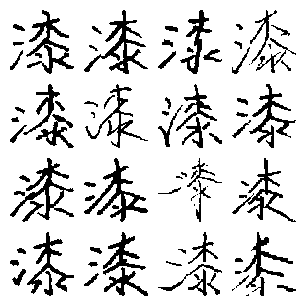 漆漆漆漆
漆漆漆漆
漆漆漆漆
漆漆漆漆